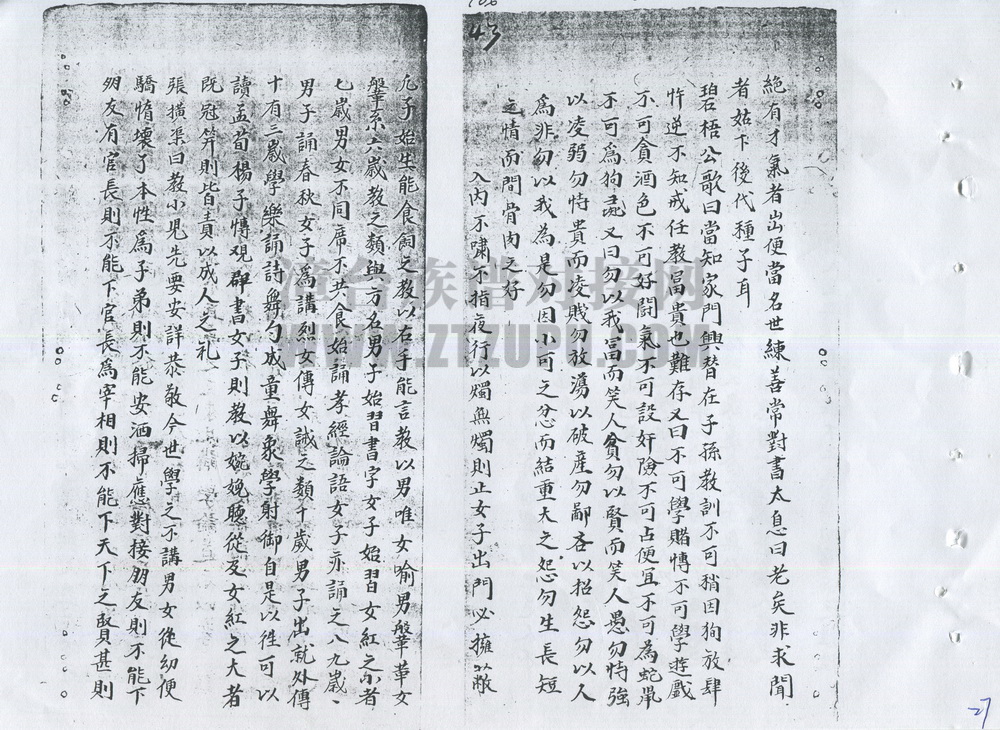 106
43
絶有才氣者出便當名世練善常對書太息曰老矣非求聞
者姑下後代種子耳
碧梧公歌曰當知家門興替在子孫教訓不可稍因狥放肆
忤逆不知戒任教富貴也難存又曰不可學賭愽不可學遊戲
不可貪酒色不可好鬪氣不可設奸險不可占便宜不可為蛇鼠
不可爲狗彘又曰勿以我富而笑人貧勿以賢而笑人愚勿恃強
以凌弱勿恃貴而凌賎勿放蕩以破産勿鄙吝以招怨勿以人
爲非勿以我為是勿因小可之忿而結重大之怨勿生長短
之情而間骨肉之好
入内不嘯不指夜行以燭無燭則止女子出門必擁蔽
凡子始生能食飼之教以右手能言教以男唯女喻男鞶革女
鞶糸六歳教之類與方名男子始習書字女子始習女紅之小者
七歳男女不同席不共食始誦孝經論語女子亦誦之八九歳、
男子誦春秋女子為講烈女傳女誡之類十歳男子出就外傅
十有三歳學樂誦詩舞勺成童舞象學射御自是以徃可以
讀孟荀楊子愽观群書女子則教以婉娩聴從及女紅之大者
既冠笄則皆責以成人之礼、
張横渠曰教小児先要安詳恭敬今世學之不講男女從幼便
驕惰壊了本性爲子弟則不能安洒掃應對接朋友則不能下
朋友有官長則不能下官長爲宰相則不能下天下之賢甚則
漳台族谱对接网
WWW.ZTZUPU.COM
27